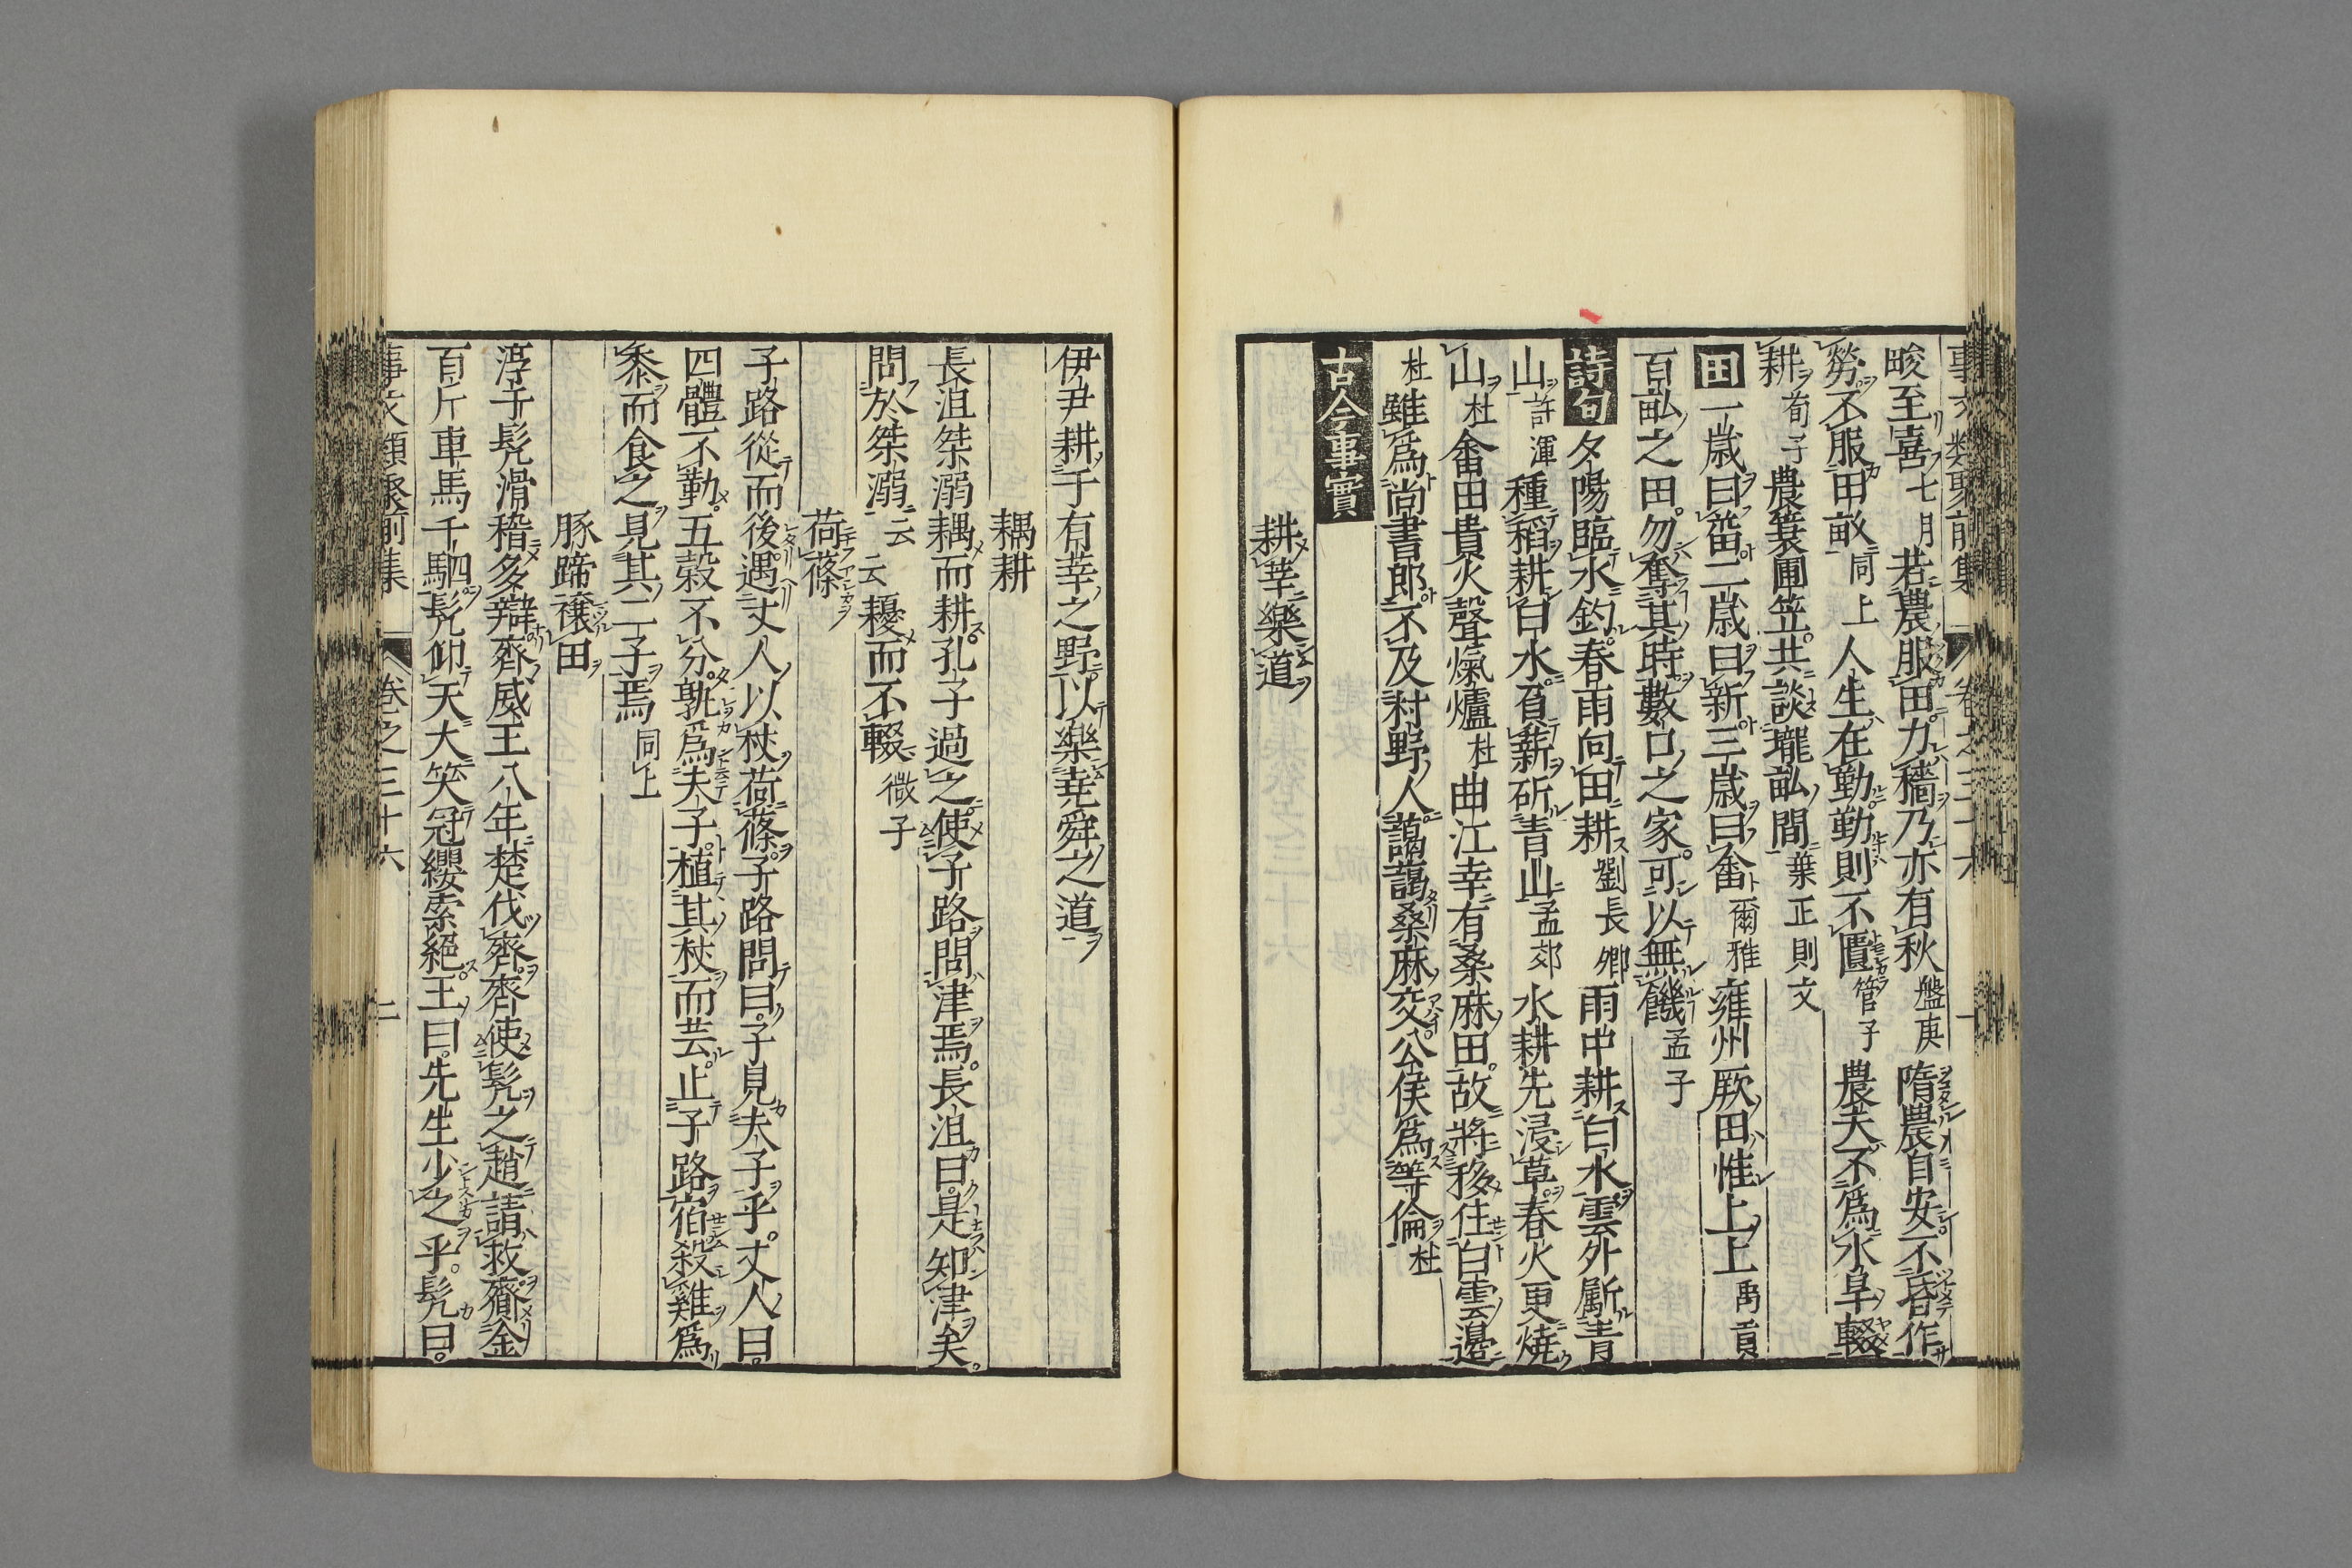 事文類聚前集 卷之三十六 一
畯至喜七月若農服田力穡乃亦有秋盤庚隋農自安不昏作
勞不服田畝同上人生在勤勤則不匱管子農夫不爲水旱輟
耕荀子農簑圃笠共談壠畝間葉正則文
田一歲曰菑二歲曰新三歲曰畬爾雅雍州厥田惟上上禹貢
百畝之田勿奪其時數口之家可以無饑孟子
詩句夕陽臨水釣春雨向田耕劉長卿雨中耕白水雲外斸青
山許渾種稻耕白水負薪斫青山孟郊水耕先浸草春火更燒
山杜畬田貴火聲煏爐杜曲江幸有桑麻田故將移住白雲邊
杜雖爲尚書郎不及村野人藹藹桑麻交公侯爲等倫杜
古今事實
耕莘樂道
伊尹耕于有莘之野以樂堯舜之道
耦耕
長沮桀溺耦而耕孔子過之使子路問津焉長沮曰是知津矣
問於桀溺云云耰而不輟微子
荷蓧
子路從而後遇丈人以杖荷蓧子路問曰子見夫子乎丈人曰
四體不勤五穀不分孰爲夫子植其杖而芸止子路宿殺雞爲
黍而食之見其二子焉同上
豚蹄禳田
淳于髡滑稽多辯齊威王八年楚伐齊齊使髡之趙請救齎金
百斤車馬千駟髡仰天大笑冠纓索絕王曰先生少之乎髡曰
事文類聚前集 卷之三十六 二